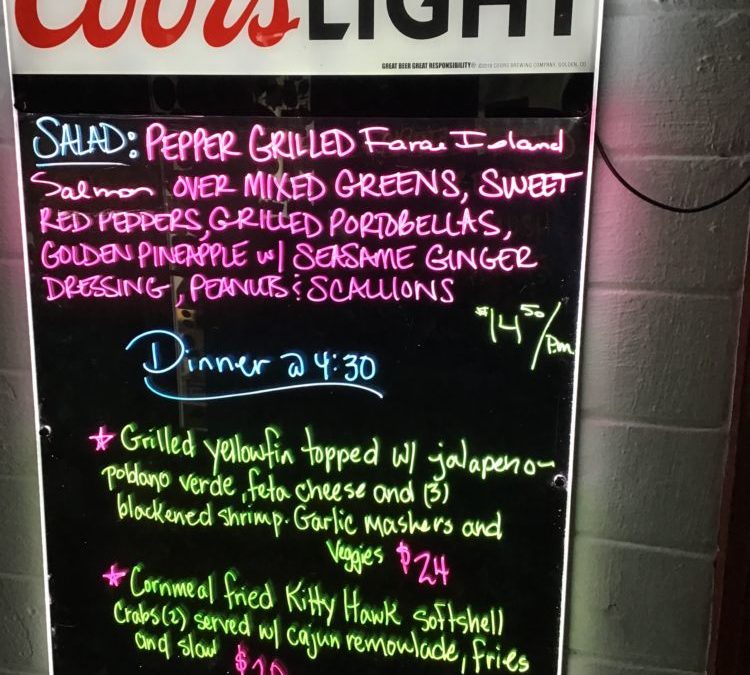 Coors LIGHT
GREAT BEER GREAT RESPONSIBILITY® ©2019 COORS BREWING COMPANY, GOLDEN, CO
SALAD: PEPPER GRILLED Faroe Island
Salmon OVER MIXED GREENS, SWEET
RED PEPPERS, GRILLED PORTOBELLAS,
GOLDEN PINEAPPLE w/ SEASAME GINGER
DRESSING, PEANUTS & SCALLIONS
$14 50/P.m.
Dinner @ 4:30
★ Grilled yellowfin topped w/ jalapeno-
poblano verde, feta cheese and (3)
blackened shrimp. Garlic mashers and
Veggies $24
★ Cornmeal fried Kitty Hawk Softshell
Crabs(2) served w/ cajun remowlade, fries
and slaw